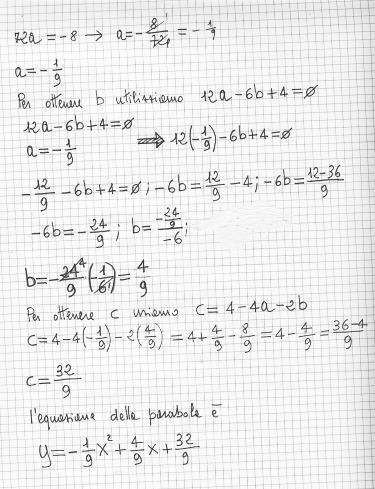 72a = -8 → a = -8/72 = -1/9
a = -1/9
Per ottenere b utilizziamo 12a - 6b + 4 = ∅
12a - 6b + 4 = ∅
a = -1/9 ⇒ 12(-1/9) - 6b + 4 = ∅
-12/9 - 6b + 4 = ∅ ; -6b = 12/9 - 4 ; -6b = 12-36/9
-6b = -24/9 ; b = -24/9/-6 ;
b = -24⁴/9 (-1/6¹) = 4/9
Per ottenere c usiamo c = 4 - 4a - 2b
c = 4 - 4(-1/9) - 2(4/9) = 4 + 4/9 - 8/9 = 4 - 4/9 = 36-4/9
c = 32/9
l'equazione della parabola è
y = -1/9 x² + 4/9 x + 32/9